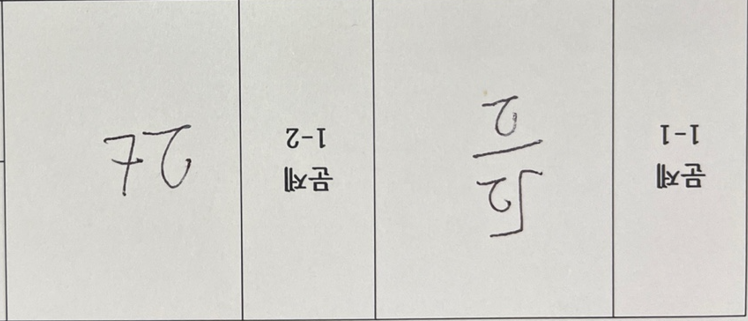 문제
1-1
√2/2
문제
1-2
27